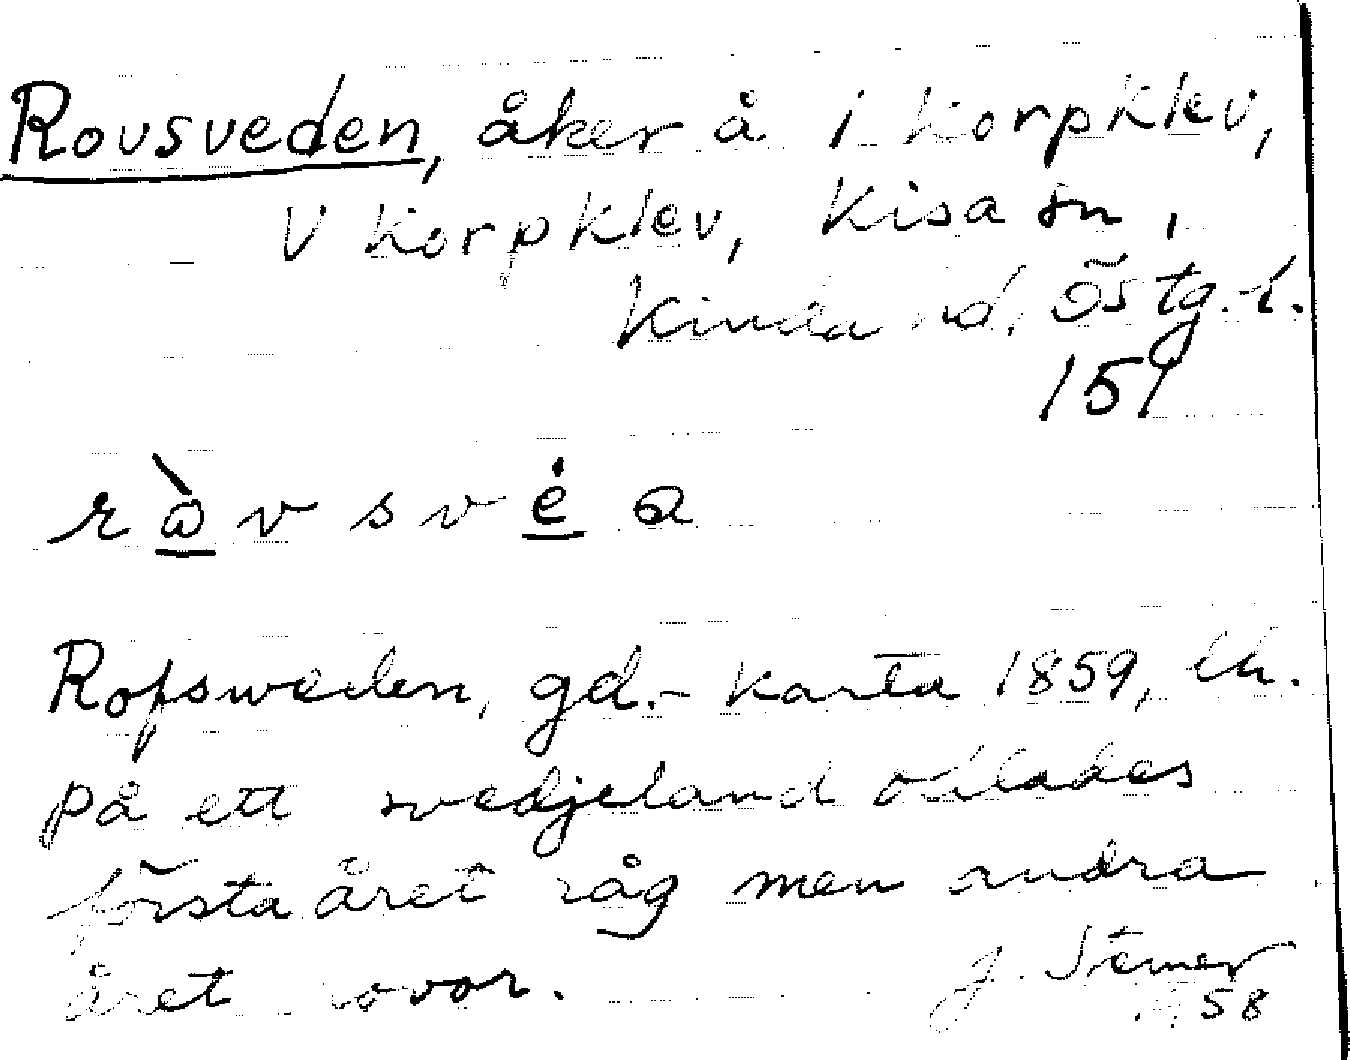 Rovsveden, åker å i Korpklev,
V Korpklev, Kisa sn,
Kinda hd, Östg. l.
151
Rofsweden, gd.- karta 1859,
på ett svedjeland odlades
första året råg men andra
året rovor. J. Stemer
58